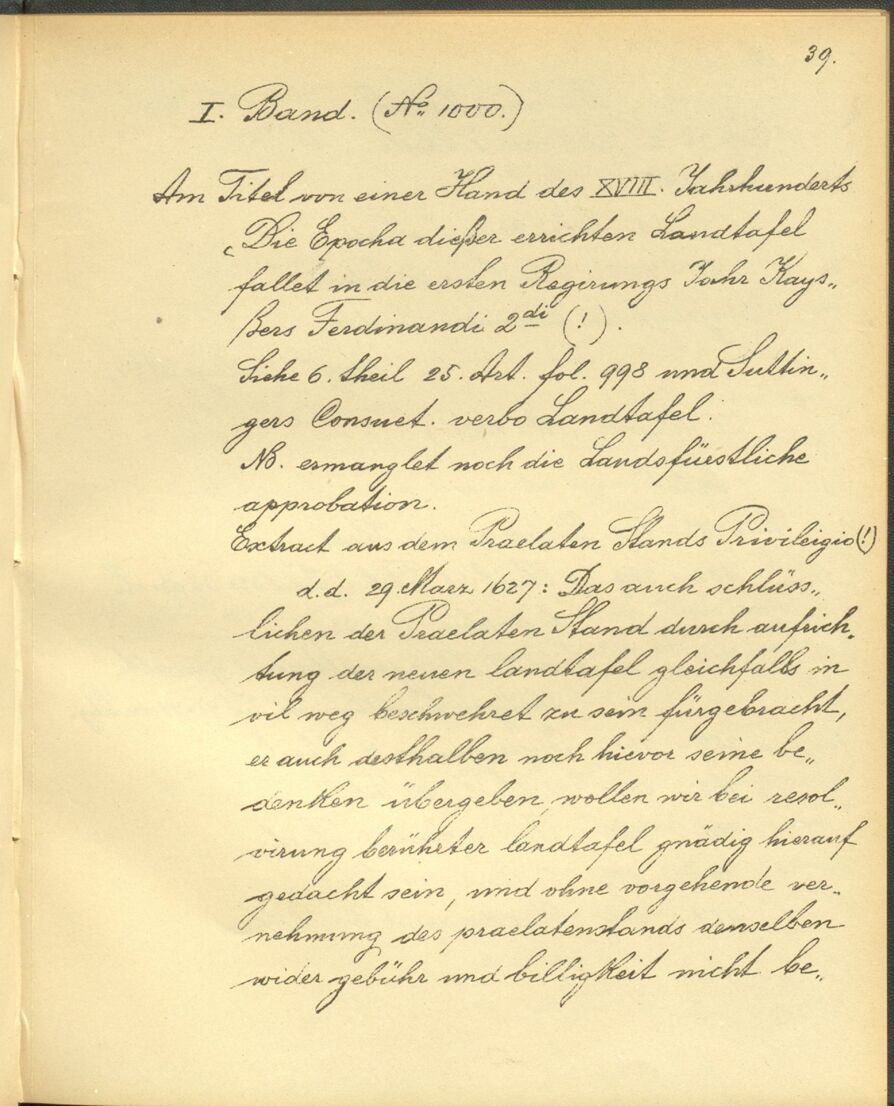 39.
I. Band. (No. 1000.)
Am Titel von einer Hand des XVIII. Jahrhunderts
„Die Epocha dießer errichten Landtafel
fallet in die ersten Regirungs Jahr Kays„
ßers Ferdinandi 2di (!).
Siehe 6. theil 25. Art. fol. 998 und Suttin„
gers Consuet. verbo Landtafel.
NB. ermanglet noch die Landsfürstliche
approbation.
Extract aus dem Praelaten Stands Privileigio (!)
d.d. 29 März 1627: Das auch schlüss„
lichen der Praelaten Stand durch aufrich„
tung der neuen landtafel gleichfalls in
vil weg beschwehret zu sein fürgebracht,
er auch desthalben noch hievor seine be„
denken übergeben, wollen wir bei resol„
virung berührter landtafel gnädig hierauf
gedacht sein, und ohne vorgehende ver„
nehmung des praelatenstands denselben
wider gebühr und billigkeit nicht be„